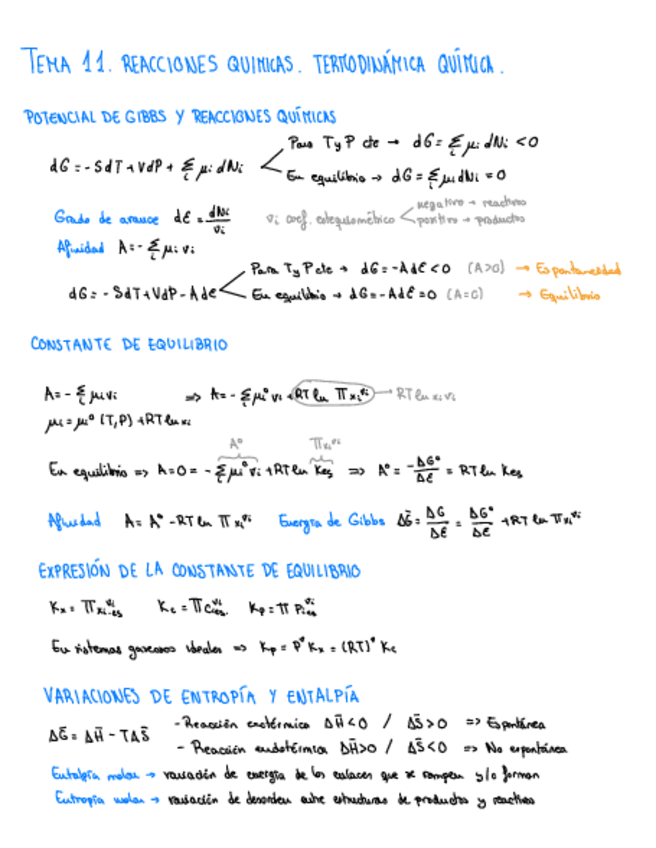 TEMA 11. REACCIONES QUIMICAS. TERMODINÁMICA QUÍMICA.
POTENCIAL DE GIBBS Y REACCIONES QUÍMICAS
dG = -SdT + VdP + Σᵢ μᵢ dNᵢ
Para T y P cte → dG = Σᵢ μᵢ dNᵢ < 0
En equilibrio → dG = Σᵢ μᵢ dNᵢ = 0
Grado de avance dℰ = dNᵢ/νᵢ νᵢ coef. estequiométrico
negativo → reactivos
positivo → productos
Afinidad A = - Σᵢ μᵢ νᵢ
dG = - SdT + VdP - Adℰ
Para T y P cte → dG = -Adℰ < 0 (A>0) → Espontaneidad
En equilibrio → dG = -Adℰ = 0 (A=0) → Equilibrio
CONSTANTE DE EQUILIBRIO
A = - Σᵢ μᵢ νᵢ ⇒ A = - Σᵢ μᵢ° νᵢ + RT ln Π xᵢ^νᵢ → RT ln xᵢ νᵢ
μᵢ = μᵢ° (T,P) + RT ln xᵢ
A° Π xᵢ^νᵢ
En equilibrio ⇒ A = 0 = - Σᵢ μᵢ° νᵢ + RT ln Keq ⇒ A° = -ΔG°/Δℰ = RT ln Keq
Afinidad A = A° - RT ln Π xᵢ^νᵢ Energía de Gibbs ΔG̅ = ΔG/Δℰ = ΔG°/Δℰ + RT ln Π xᵢ^νᵢ
EXPRESIÓN DE LA CONSTANTE DE EQUILIBRIO
Kx = Π xᵢ,eq^νᵢ Kc = Π cᵢ,eq^νᵢ Kp = Π Pᵢ,eq^νᵢ
En sistemas gaseosos ideales ⇒ Kp = P^ν Kx = (RT)^ν Kc
VARIACIONES DE ENTROPÍA Y ENTALPÍA
ΔG̅ = ΔH̅ - TΔS̅
- Reacción exotérmica ΔH̅ < 0 / ΔS̅ > 0 ⇒ Espontánea
- Reacción endotérmica ΔH̅ > 0 / ΔS̅ < 0 ⇒ No espontánea
Entalpía molar → variación de energía de los enlaces que se rompen y/o forman
Entropía molar → variación de desorden entre estructuras de productos y reactivos